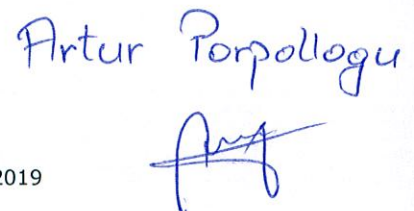 Artur Porpollogu
2019